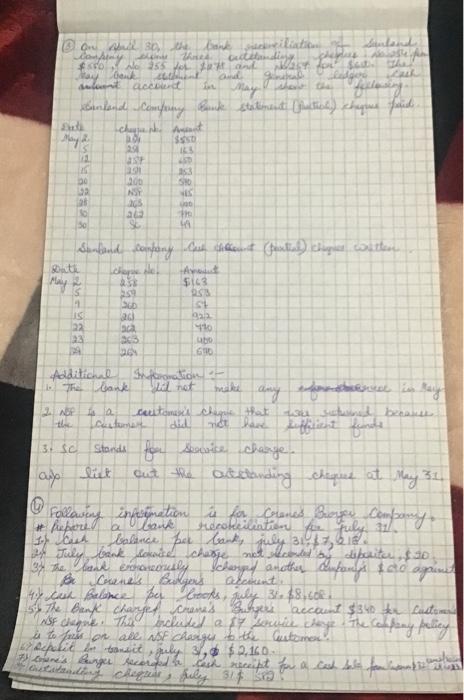 ③ On April 30, the bank reconciliation of Sunland
Company shows three outstanding cheques No 254 for
$550, No 255 for and No 257 for The
May bank statement and general ledger cash
account in May show the following.
Sunland Company Bank statement (partial) cheques paid.
Date cheque No. Amount
May 2 254 $550
5 258 163
12 257 650
15 259 253
20 260 540
22 NSF 415
28 263 480
30 262 770
30 SC 49
Sunland company Cash account (partial) cheques written
Date cheque No. Amount
May 2 258 $163
5 259 253
9 260 54
15 261 922
22 262 770
23 263 480
29 264 640
Additional Information :-
1. The bank did not make any in May
2. NSF is a customer's cheque that was returned because
the customer did not have sufficient funds
3. SC stands for Service charge.
a)> list out the outstanding cheques at May 31.
④ Following information is for Crane's Burger Company.
# Prepare a bank reconciliation for July 31.
1> Cash balance per bank, July 31, $7,218.
2> July bank service charge not recorded by depositer, $20.
3> The bank erroneously charged another company's $ against
Crane's Burgers account.
4> Cash Balance per books, July 31, $8,608.
5> The Bank charged Crane's Burger's account $340 for Customer
NSF cheque. This included a $7 service charge. The Company policy
is to pass on all NSF charges to the Customer.
6> Deposit in transit, July 31, $2,160.
7> Crane's Burger recorded a cash receipt for a cash sale
outstanding cheques, July 31 $